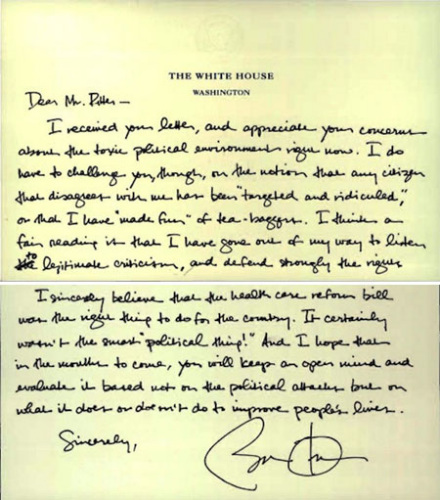 THE WHITE HOUSE
WASHINGTON
Dear Mr. Ritter —
I received your letter, and appreciate your concerns
about the toxic political environment right now. I do
have to challenge you, though, on the notion that any citizen
that disagrees with me has been "targeted and ridiculed,"
or that I have "made fun" of tea-baggers. I think a
fair reading is that I have gone out of my way to listen
to legitimate criticism, and defend strongly the right
I sincerely believe that the health care reform bill
was the right thing to do for the country. It certainly
wasn't the smart "political thing!" And I hope that
in the months to come, you will keep an open mind and
evaluate it based not on the political attacks but on
what it does or doesn't do to improve people's lives.
Sincerely,